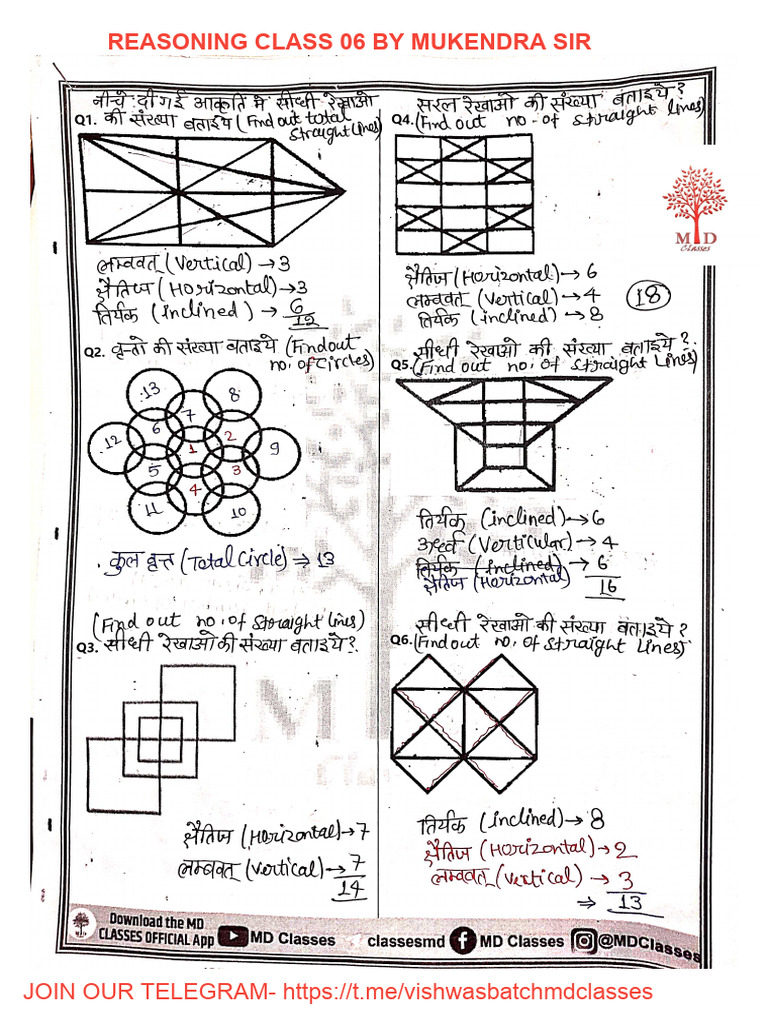 REASONING CLASS 06 BY MUKENDRA SIR
नीचे दी गई आकृति मे सीधी रेखाओ
Q1. की संख्या बताइये (Find out total
straight lines)
लम्बवत् (Vertical) → 3
क्षैतिज (Horizontal) → 3
तिर्यक (Inclined) → 6
12
Q2. वृत्तो की संख्या बताइये (Find out
no. of Circles)
13
8
7
6
2
12
1
9
5
3
4
11
10
कुल वृत्त (Total Circle) ⇒ 13
(Find out no. of straight lines)
Q3. सीधी रेखाओ की संख्या बताइये?
क्षैतिज (Horizontal) → 7
लम्बवत् (Vertical) → 7
14
सरल रेखाओ की संख्या बताइये?
Q4. (Find out no. of straight lines)
क्षैतिज (Horizontal) → 6
लम्बवत् (Vertical) → 4
तिर्यक (Inclined) → 8
18
सीधी रेखाओ की संख्या बताइये?
Q5. (Find out no. of straight lines)
तिर्यक (inclined) → 6
(Verticular) → 4
तिर्यक (inclined) → 6
क्षैतिज (Horizontal)
16
सीधी रेखाओ की संख्या बताइये?
Q6. (Find out no. of straight lines)
तिर्यक (Inclined) → 8
क्षैतिज (Horizontal) → 2
लम्बवत् (Vertical) → 3
⇒ 13
MD
Classes
Download the MD
CLASSES OFFICIAL App
MD Classes
classesmd
MD Classes
@MDClasses
JOIN OUR TELEGRAM- https://t.me/vishwasbatchmdclasses